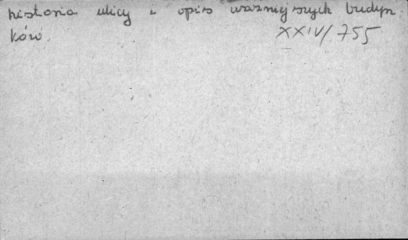 historia ulicy i opis ważniejszych budyn
ków.
XXIV/755